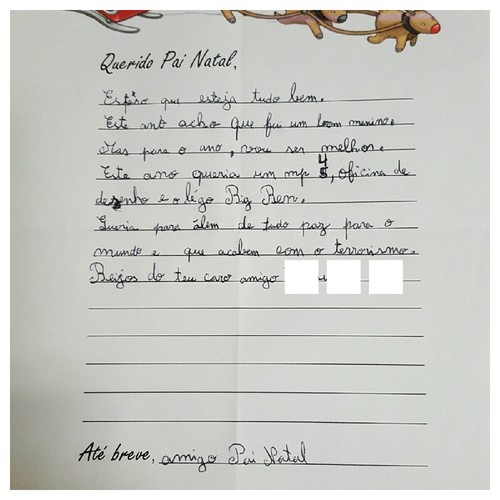 Querido Pai Natal,
Espero que esteja tudo bem.
Este ano acho que fui um bom menino.
Mas para o ano, vou ser melhor.
Este ano queria um mp 4, oficina de
desenho e o légo Big Ben.
Queria para álem de tudo paz para o
mundo e que acabem com o terrorismo.
Beijos do teu caro amigo
Até breve, amigo Pai Natal